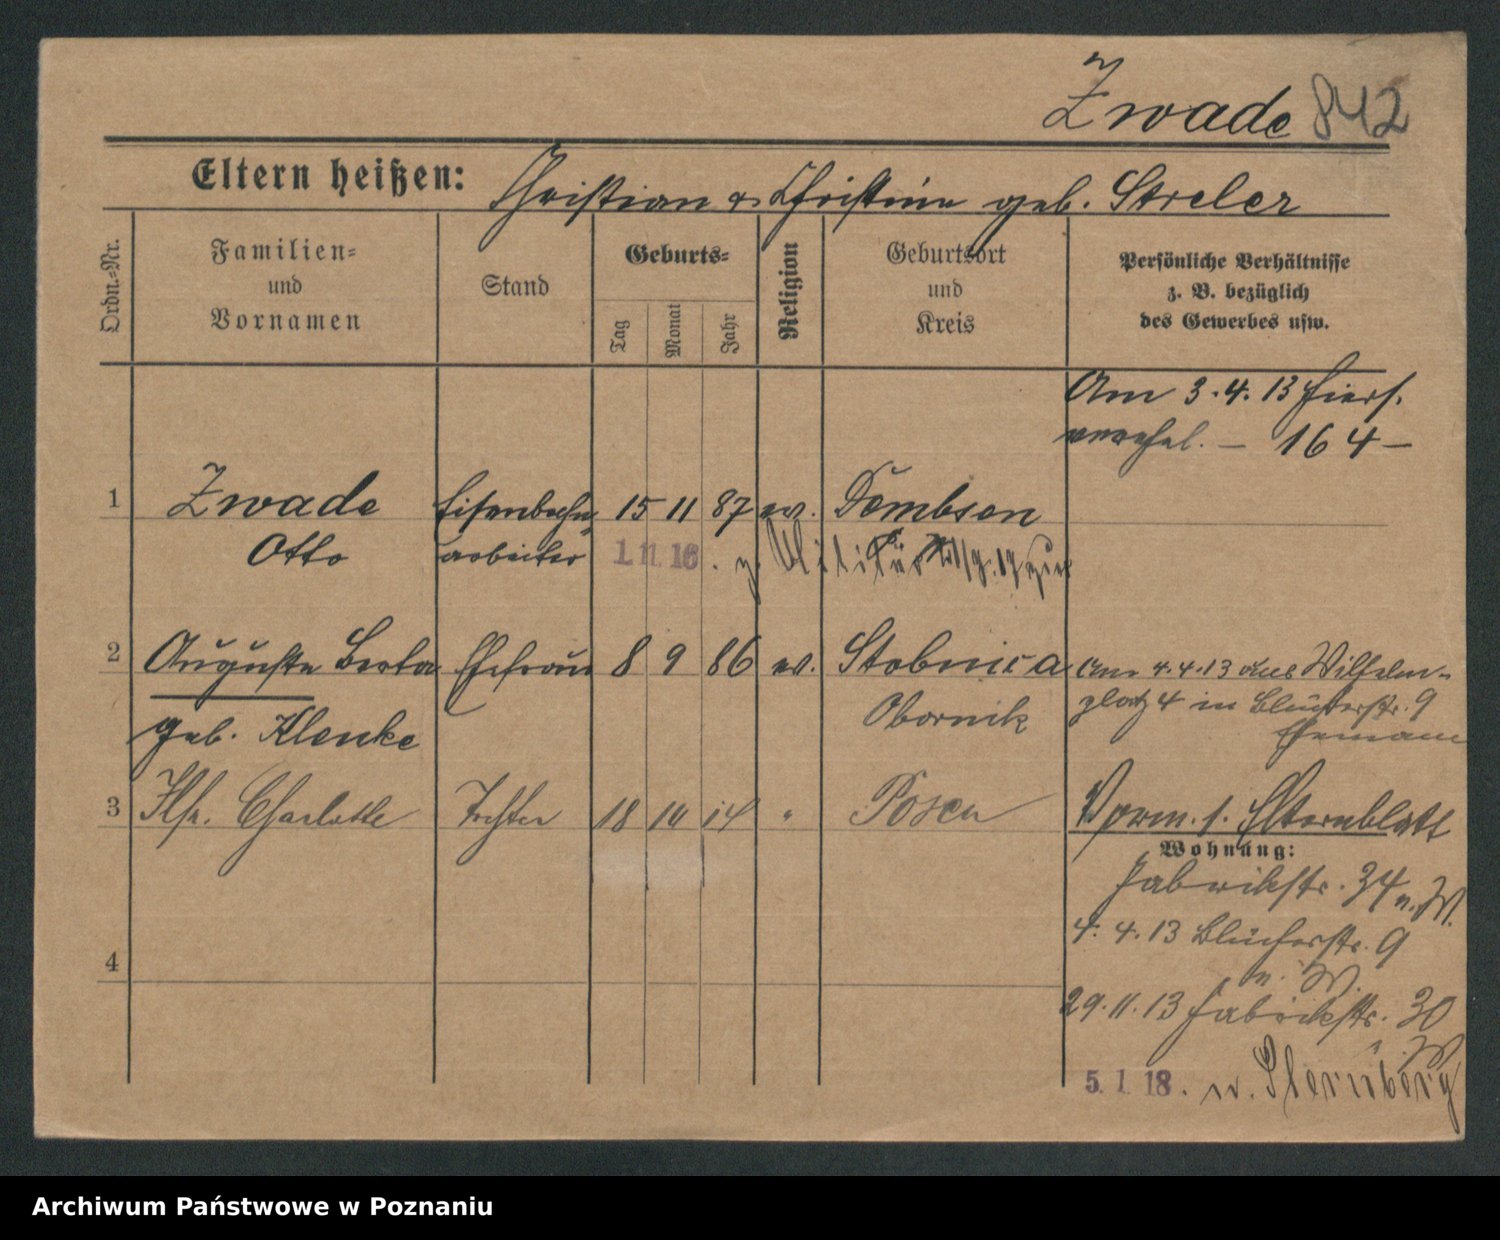 Zwade 842
Eltern heißen: Christian & Christine geb. Streler
Ordn.-Nr.
Familien-
und
Vornamen
Stand
Geburts-
Tag
Monat
Jahr
Religion
Geburtsort
und
Kreis
Persönliche Verhältnisse
z. B. bezüglich
des Gewerbes usw.
Am 3.4.13 hiers.
verehel. — 164 —
1 Zwade Eisenbahn- 15 11 87 ev. Dembsen
Otto arbeiter 1. 11. 16 . z. Militär
2 Auguste Berta Ehefrau 8 9 86 ev. Stobnica
geb. Klenke Obornik
Am 4.4.13 aus Wilhelm-
platz 4 in Blücherstr. 9
Ehemann
3 Charlotte Tochter 18 10 14 " Posen
Verm. s. Elternblatt
Wohnung:
Fabrikstr. 34 n. W.
4. 4. 13 Blücherstr. 9
n. W.
4
29. 11. 13 Fabrikstr. 30
n. W.
5. 1. 18. n. Sternberg
Archiwum Państwowe w Poznaniu